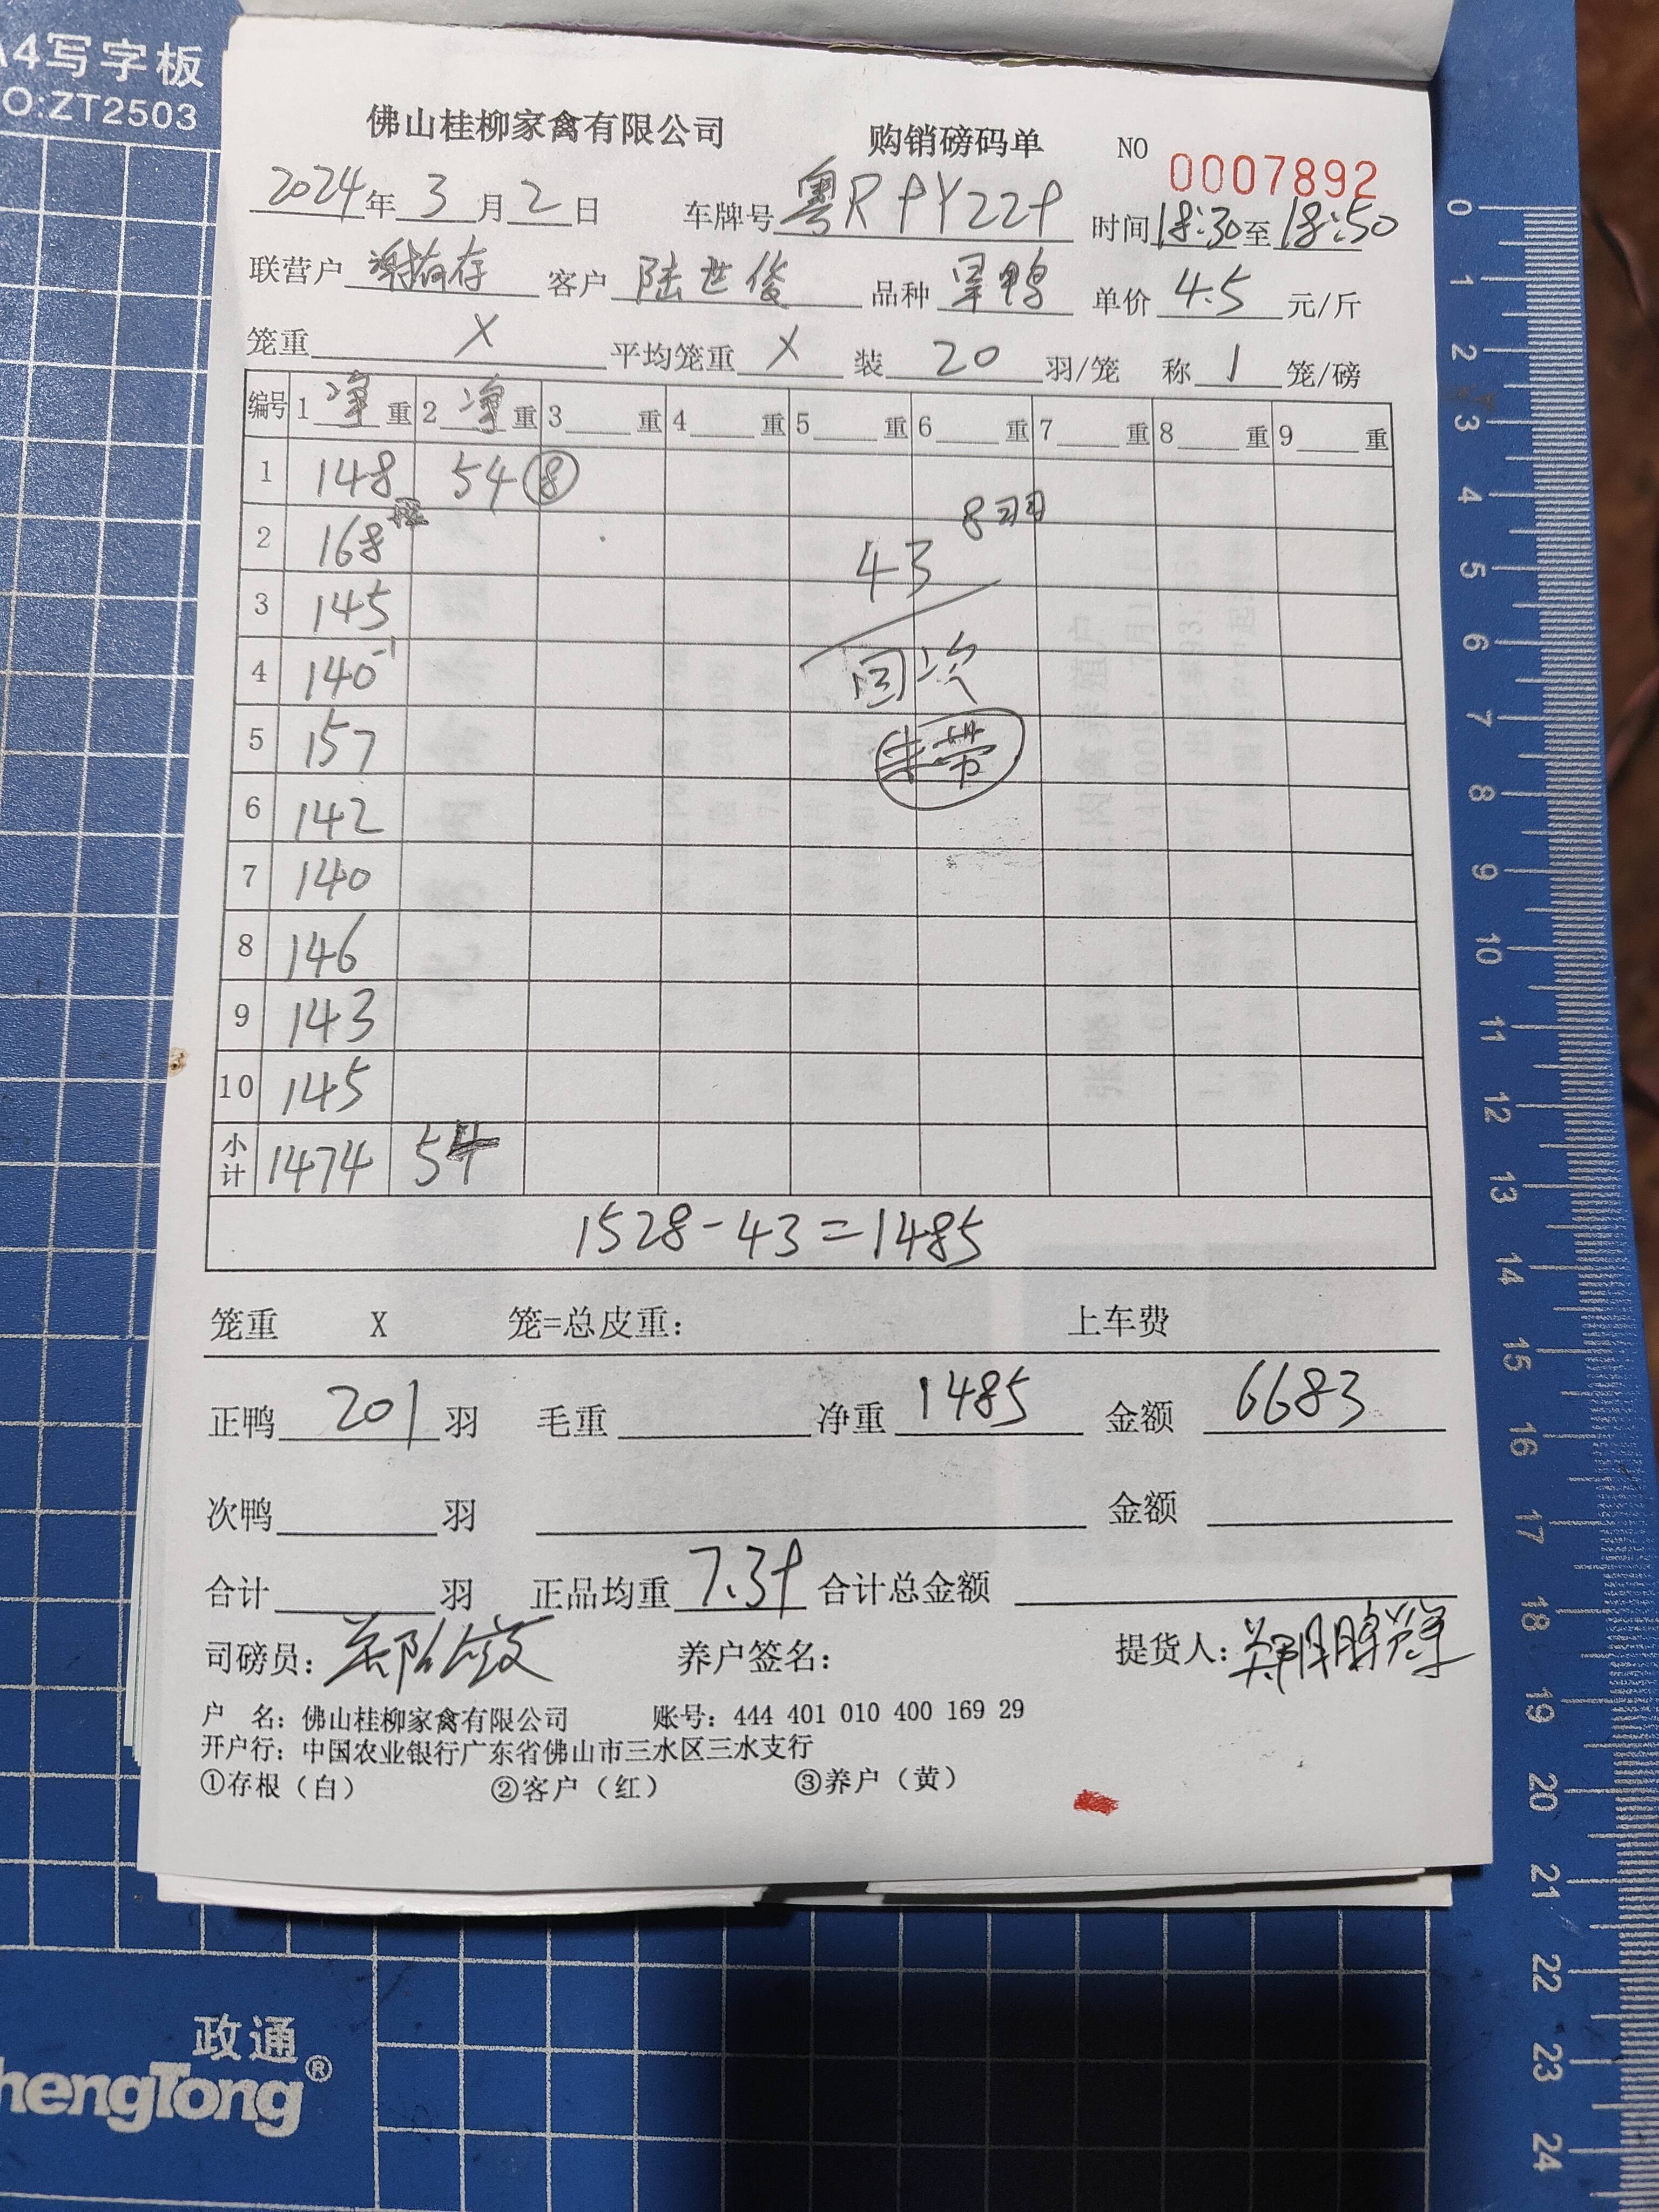 A4写字板
NO:ZT2503
佛山桂柳家禽有限公司 购销磅码单 NO 0007892
2024年3月2日 车牌号粤R9Y229 时间18:30至18:50
联营户 客户陆世俊 品种 单价4.5元/斤
笼重X 平均笼重X 装20羽/笼 称1笼/磅
编号 1净重 2净重 3重 4重 5重 6重 7重 8重 9重
1 148 54 8
8羽
2 168
43
3 145
4 140 -1
回次
5 157
未带
6 142
7 140
8 146
9 143
10 145
小计 1474 54
1528-43=1485
笼重 X 笼=总皮重: 上车费
正鸭201羽 毛重 净重1485 金额6683
次鸭 羽 金额
合计 羽 正品均重7.39 合计总金额
司磅员: 养户签名: 提货人:
户 名: 佛山桂柳家禽有限公司 账号: 444 401 010 400 169 29
开户行: 中国农业银行广东省佛山市三水区三水支行
①存根(白) ②客户(红) ③养户(黄)
政通
hengTong®
0 1 2 3 4 5 6 7 8 9 10 11 12 13 14 15 16 17 18 19 20 21 22 23 24